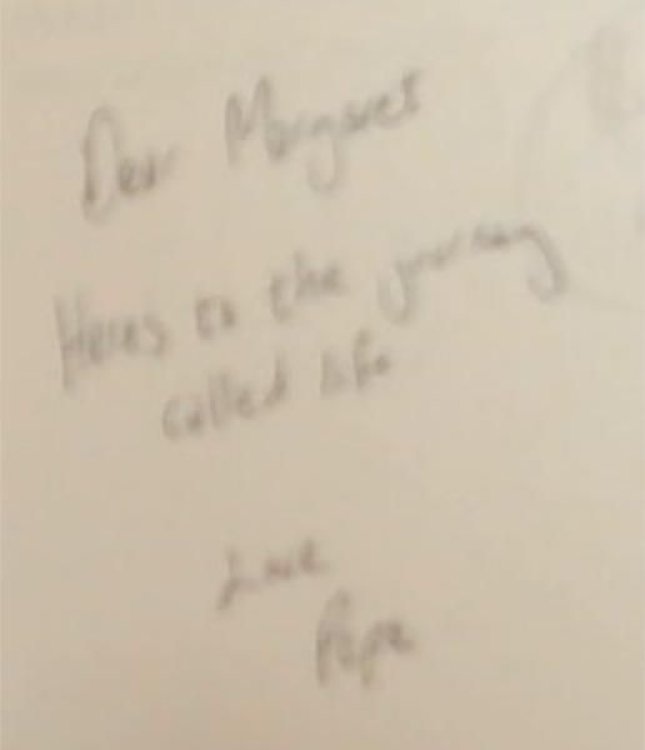 Dear Margaret
Heres to the journey
called life
Love
Papa